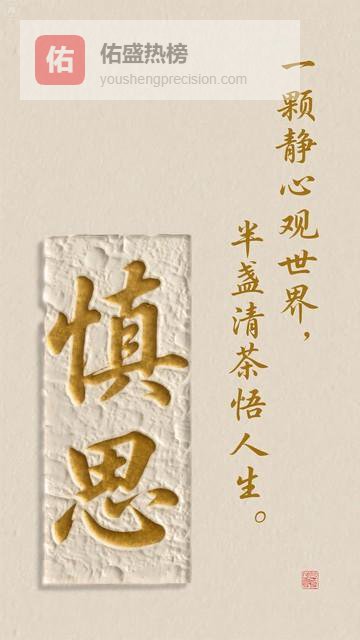 佑
佑盛热榜
youshengprecision.com
一颗静心观世界，
半盏清茶悟人生。
慎思